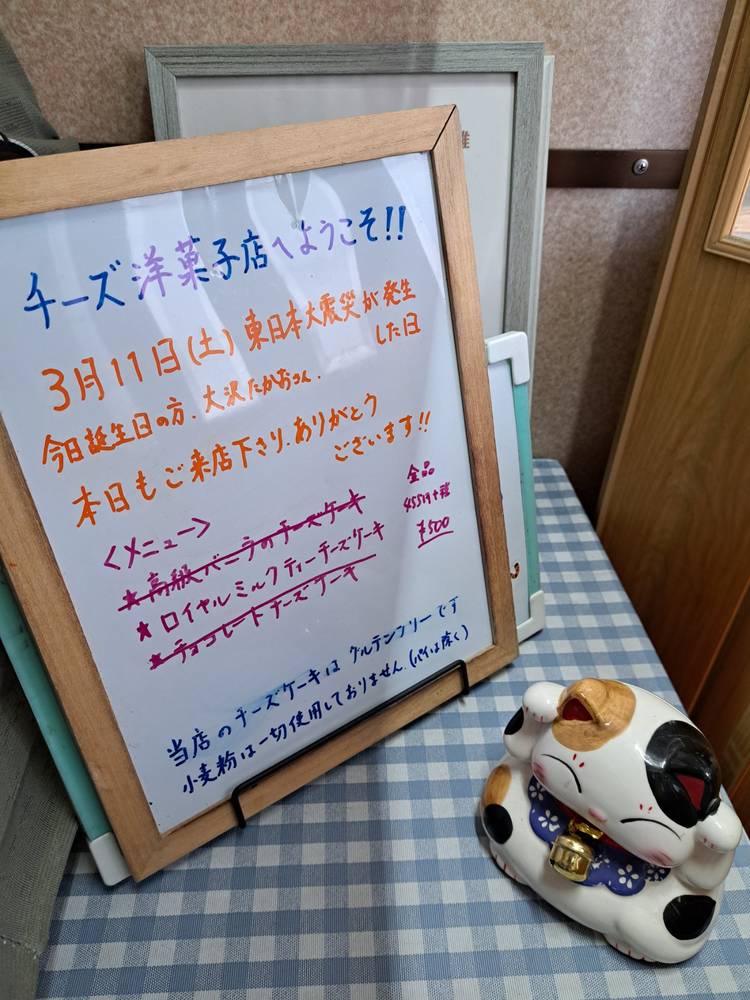 チーズ洋菓子店へようこそ!!
3月11日(土) 東日本大震災が発生
した日
今日誕生日の方、大沢たかおさん.
本日もご来店下さり、ありがとう
ございます!!
<メニュー>
★高級バニラのチーズケーキ
★ロイヤルミルクティーチーズケーキ
★チョコレートチーズケーキ
全品
455円+税
¥500
当店のチーズケーキはグルテンフリーです
小麦粉は一切使用しておりません。(パイは除く)
雅